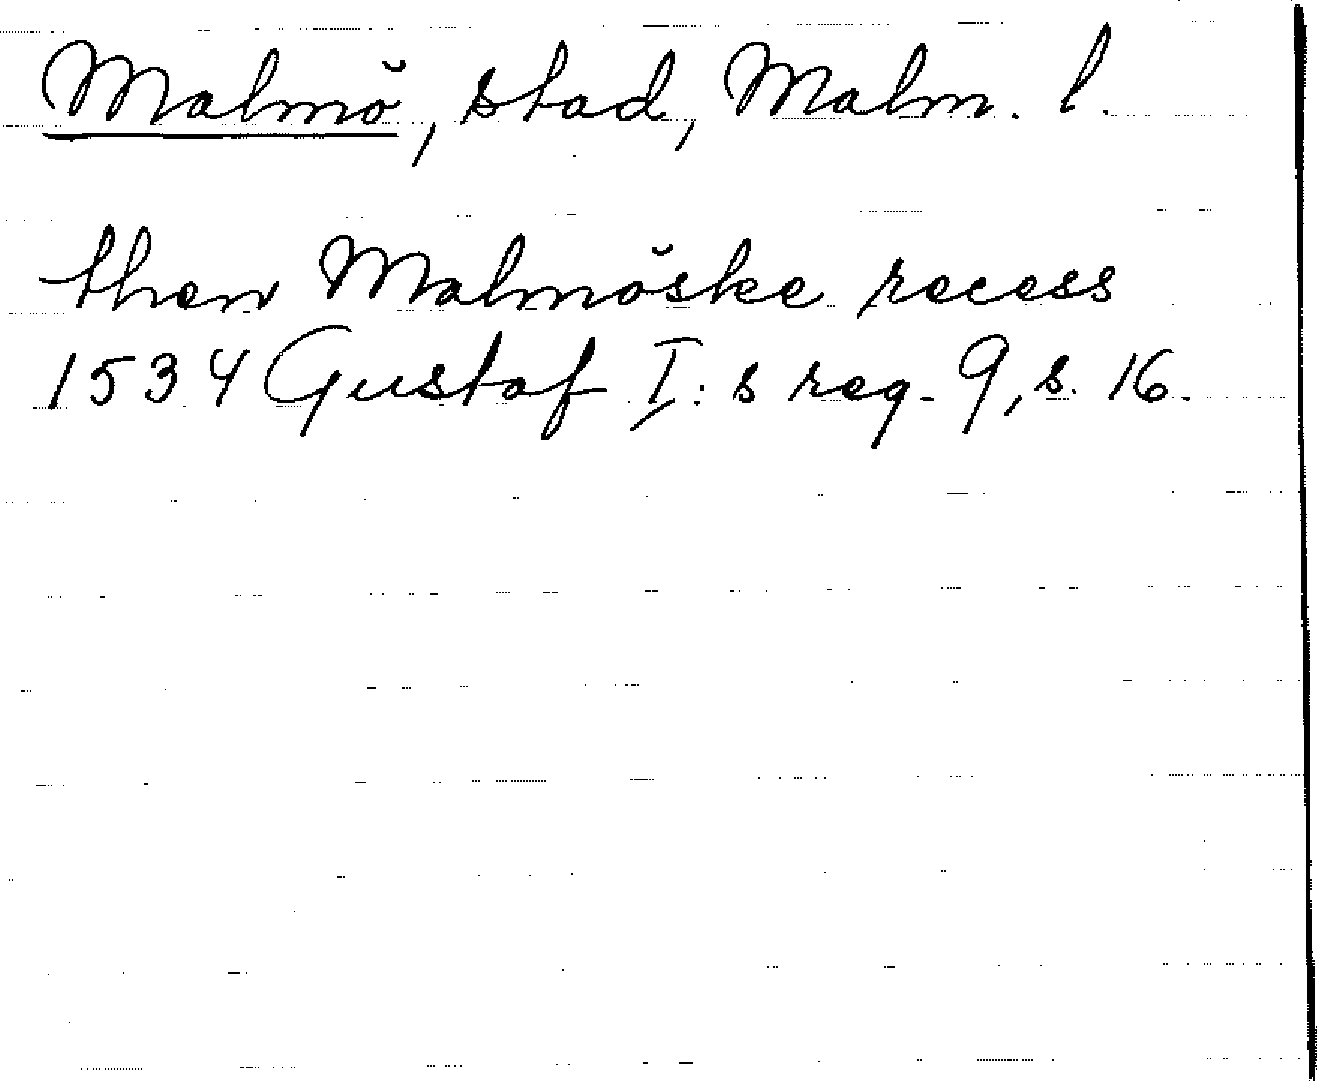 Malmö, stad, Malm. l.
then Malmöske recess
1534 Gustaf I:s reg. 9, s. 16.